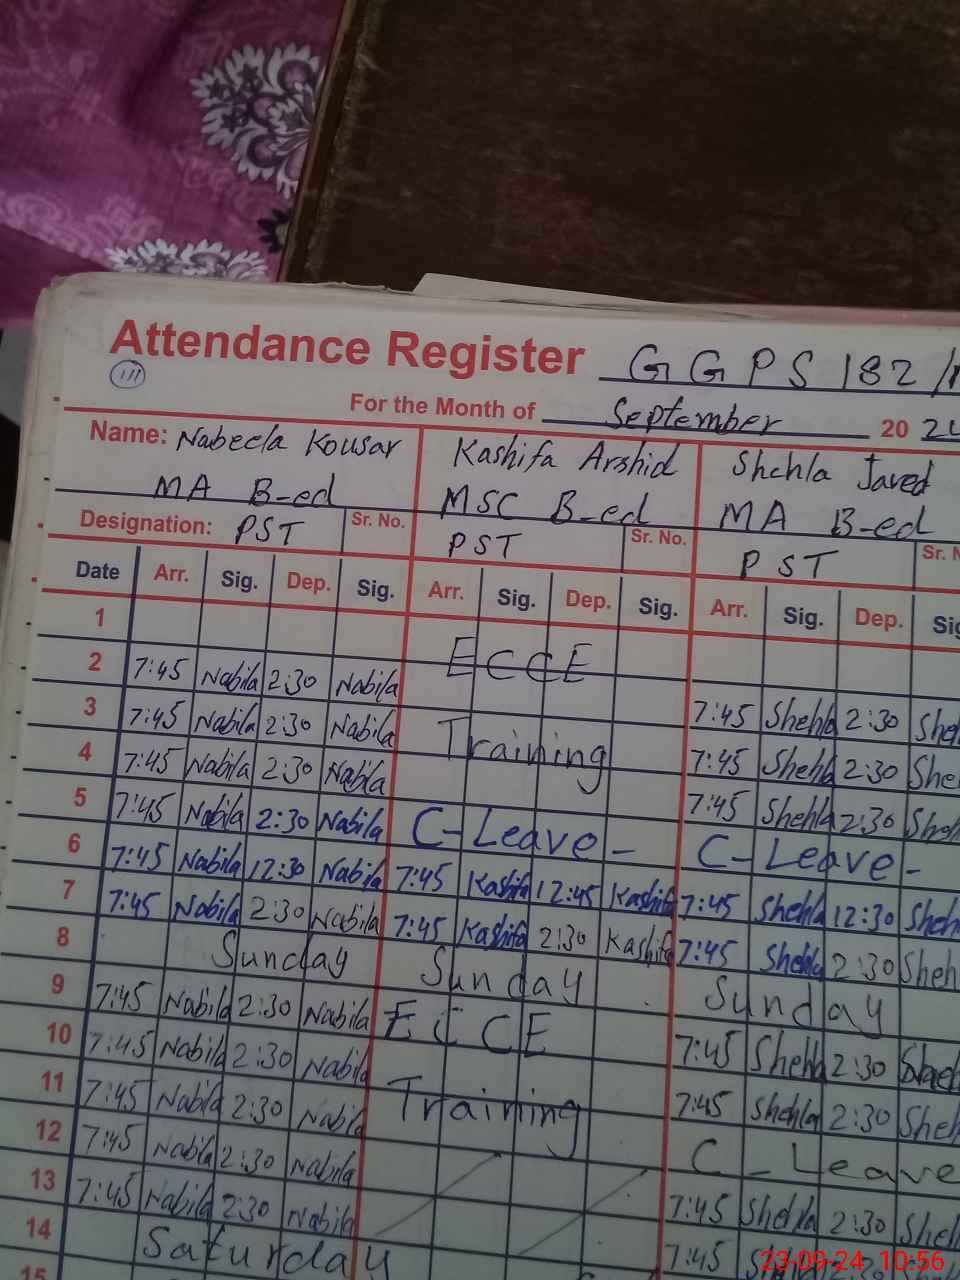 Attendance Register GGPS 182/
111
For the Month of September 20 24
Name: Nabeela Kousar Kashifa Arshid Shehla Javed
MA B-ed MSC B-ed MA B-ed
Designation: PST Sr. No. PST Sr. No. PST Sr. N
Date Arr. Sig. Dep. Sig. Arr. Sig. Dep. Sig. Arr. Sig. Dep. Sig
1
2 7:45 Nabila 2:30 Nabila ECCE
3 7:45 Nabila 2:30 Nabila Training 7:45 Shehla 2:30 Shehl
4 7:45 Nabila 2:30 Nabila 7:45 Shehla 2:30 Sheh
5 7:45 Nabila 2:30 Nabila C-Leave- 7:45 Shehla 2:30 Sheh
6 7:45 Nabila 12:30 Nabila 7:45 Kashifa 12:45 Kashifa C-Leave-
7 7:45 Nabila 2:30 Nabila 7:45 Kashifa 2:30 Kashifa 7:45 Shehla 12:30 Sheh
8 Sunday Sunday 7:45 Shehla 2:30 Sheh
9 7:45 Nabila 2:30 Nabila ECCE Sunday
10 7:45 Nabila 2:30 Nabila 7:45 Shehla 2:30
11 7:45 Nabila 2:30 Nabila Training 7:45 Shehla 2:30 Sheh
12 7:45 Nabila 2:30 Nabila C-Leave
13 7:45 Nabila 2:30 Nabila 7:45 Shehla 2:30 Shel
14 Saturday 7:45
15
23-09-24 10:56